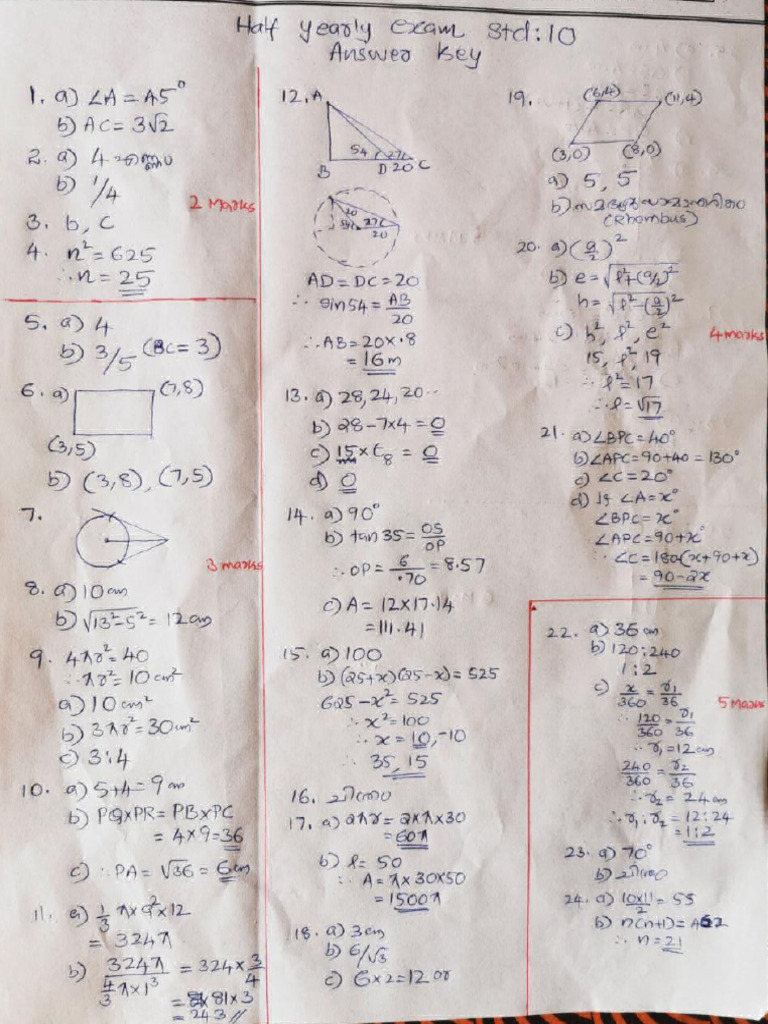 Half yearly exam Std:10
Answer key
1. a) ∠A = 45°
b) AC = 3√2
2. a) 4 എണ്ണം
b) 1/4
2 Marks
3. b, c
4. n² = 625
∴ n = 25
5. a) 4
b) 3/5 (BC = 3)
6. a) (7,8)
(3,5)
b) (3,8), (7,5)
7.
3 marks
8. a) 10 cm
b) √13²-5² = 12 cm
9. 4πr² = 40
∴ πr² = 10 cm²
a) 10 cm²
b) 3πr² = 30 cm²
c) 3:4
10. a) 5+4 = 9 cm
b) PQ×PR = PB×PC
= 4×9 = 36
c) ∴ PA = √36 = 6 cm
11. a) 1/3 π×9²×12
= 324π
b) 324π / 4/3 π×1³ = 324×3/4
= 81×3
= 243 //
12. A
54 27
B D 20 C
20
54 27
20
AD = DC = 20
∴ sin54 = AB/20
∴ AB = 20×.8
= 16m
13. a) 28, 24, 20..
b) 28-7×4 = 0
c) 15×t₈ = 0
d) 0
14. a) 90°
b) tan35 = OS/OP
∴ OP = 6/.70 = 8.57
c) A = 12×17.14
= 111.41
15. a) 100
b) (25+x)(25-x) = 525
625-x² = 525
∴ x² = 100
∴ x = 10, -10
∴ 35, 15
16. ചിത്രം
17. a) 2πr = 2×π×30
= 60π
b) l = 50
∴ A = π×30×50
= 1500π
18. a) 3cm
b) 6/√3
c) 6×2 = 12 cm
19. (6,4) (11,4)
(3,0) (8,0)
a) 5, 5
b) സമഭുജസാമാന്തരികം
(Rhombus)
20. a) (a/2)²
b) e = √l²+(a/2)²
h = √l²-(a/2)²
c) h², l², e²
4 marks
15, l², 19
∴ l² = 17
∴ l = √17
21. a) ∠BPC = 40°
b) ∠APC = 90+40 = 130°
c) ∠C = 20°
d) If ∠A = x°
∠BPC = x°
∠APC = 90+x°
∴ ∠C = 180-(x+90+x)
= 90-2x
22. a) 36 cm
b) 120:240
1:2
c) x/360 = r₁/36
5 Marks
∴ 120/360 = r₁/36
∴ r₁ = 12 cm
240/360 = r₂/36
∴ r₂ = 24 cm
∴ r₁:r₂ = 12:24
= 1:2
23. a) 70°
b) ചിത്രം
24. a) 10×11/2 = 55
b) n(n+1) = 462
∴ n = 21